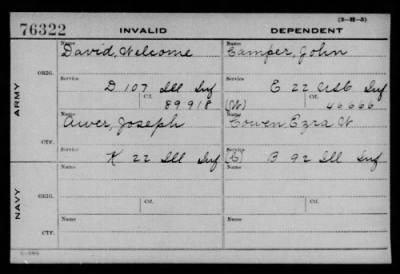 (3-H-5)
76322 INVALID DEPENDENT
Name Name
David, Welcome Camper, John
ARMY
ORIG.
Service Service
D 107 Ill Inf E 22 Inf
Ctf. Ctf.
89918 (W) 46666
Name Name
Auer, Joseph Cowen, Ezra N
CTF.
Service Service
K 22 Ill Inf (C) B 92 Ill Inf
NAVY
Name Name
ORIG.
Service Service
Ctf. Ctf.
Name Name
CTF.
Service Service